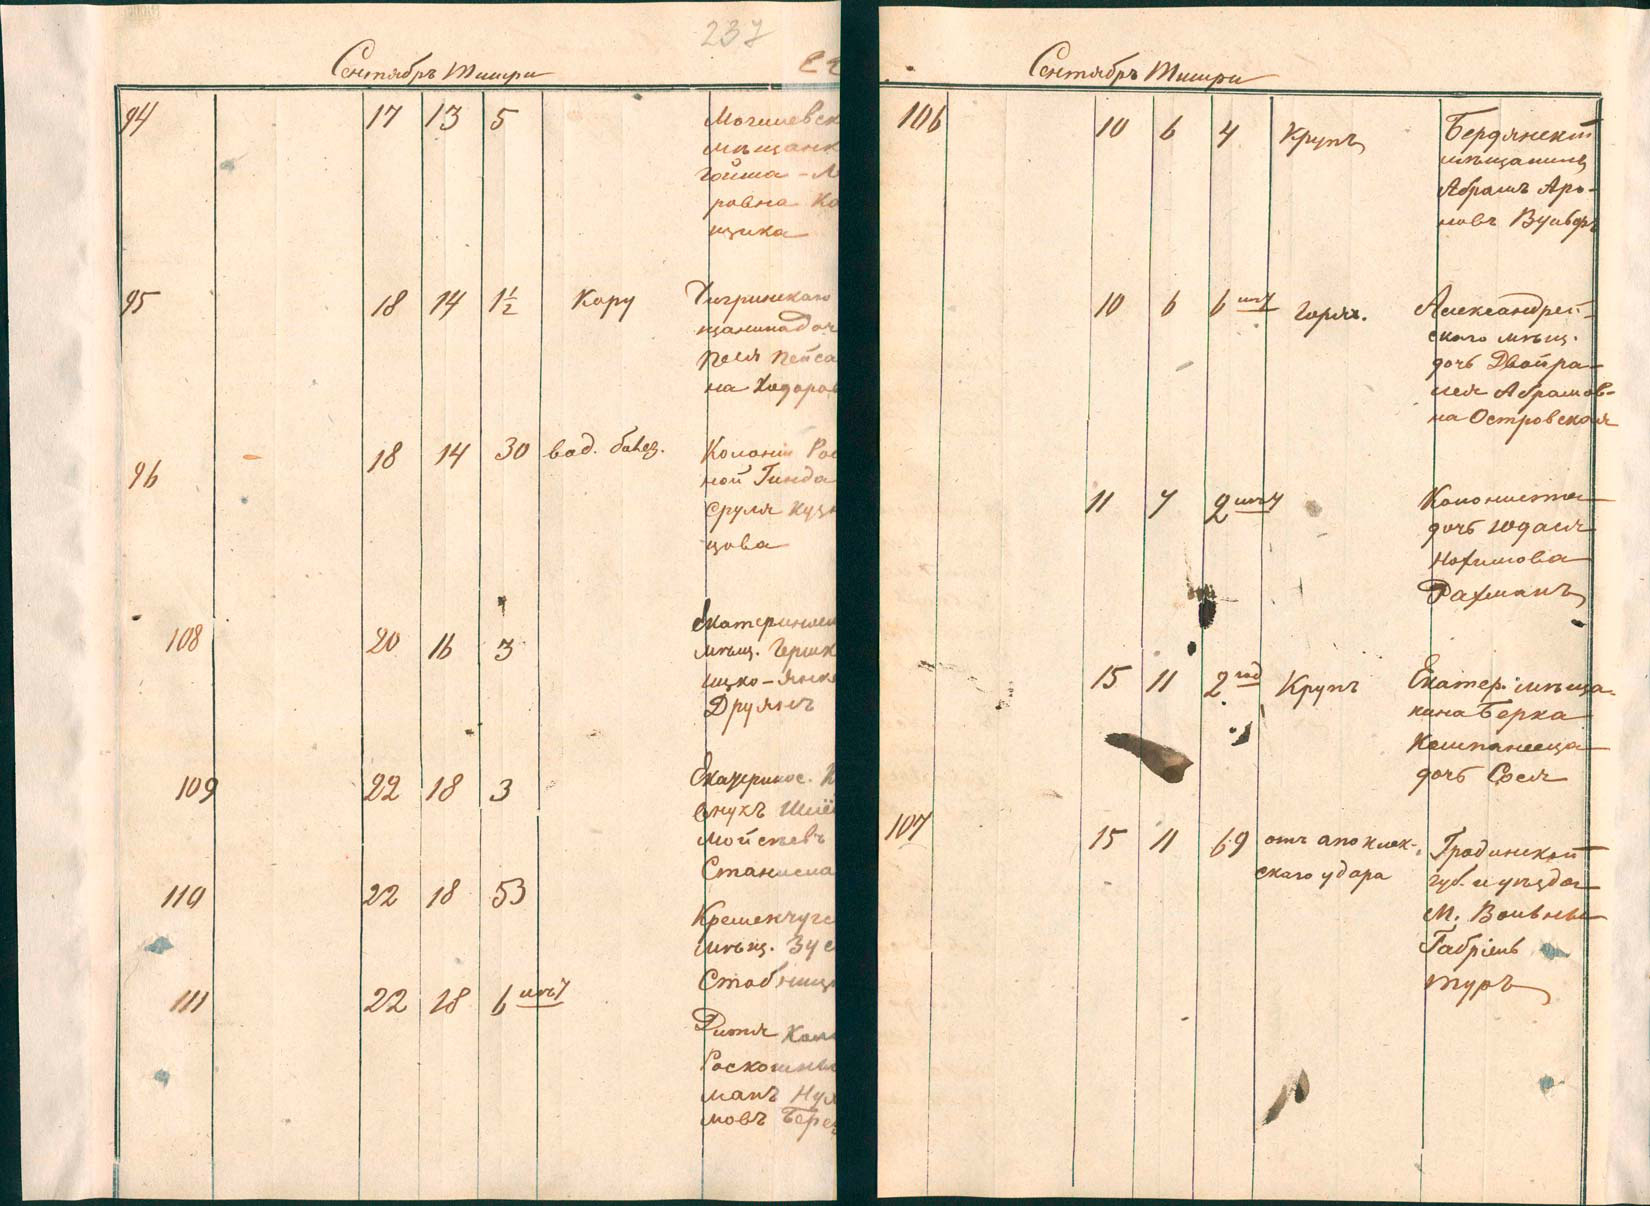 237
Сентябрь Тишри
94 17 13 5 Могилевск
мѣщанк
ровна
щика
95 18 14 1½ Кору Чигринскаго
щанина доч
Песя Пейса
на Ходоров
96 18 14 30 вод. болез. Колоніи Рос
ной Гинда
Сруля Кузн
цова
108 20 16 3 Екатеринос
мѣщ. Гершк
ицко-Янке
Друянъ
109 22 18 3 Екатеринос.
внукъ Шлё
Мойсѣевъ
Станисла
110 22 18 53 Кременчугс
мѣщ. Зус
111 22 18 6 мѣц Дитя Кол
Роскошны
манъ Нух
мовъ Берез
Сентябрь Тишри
106 10 6 4 Крупъ Бердянскій
мѣщанинъ
Абрамъ Аро-
новъ
10 6 6 мц Горяч. Александрей-
скаго мѣщ.
дочь Двойра-
Лея Абрамов-
на Островская
11 7 2 мц Колониста
дочь Юдася
Нохимова
Рахманъ
15 11 2 год Крупъ Екатер. мѣща-
нина Берка
Компанееца
дочь Сося
107 15 11 69 отъ апоплек-
скаго удара
Гродинской
губ. и уѣзда
М. Волвны
Габріель
Туръ